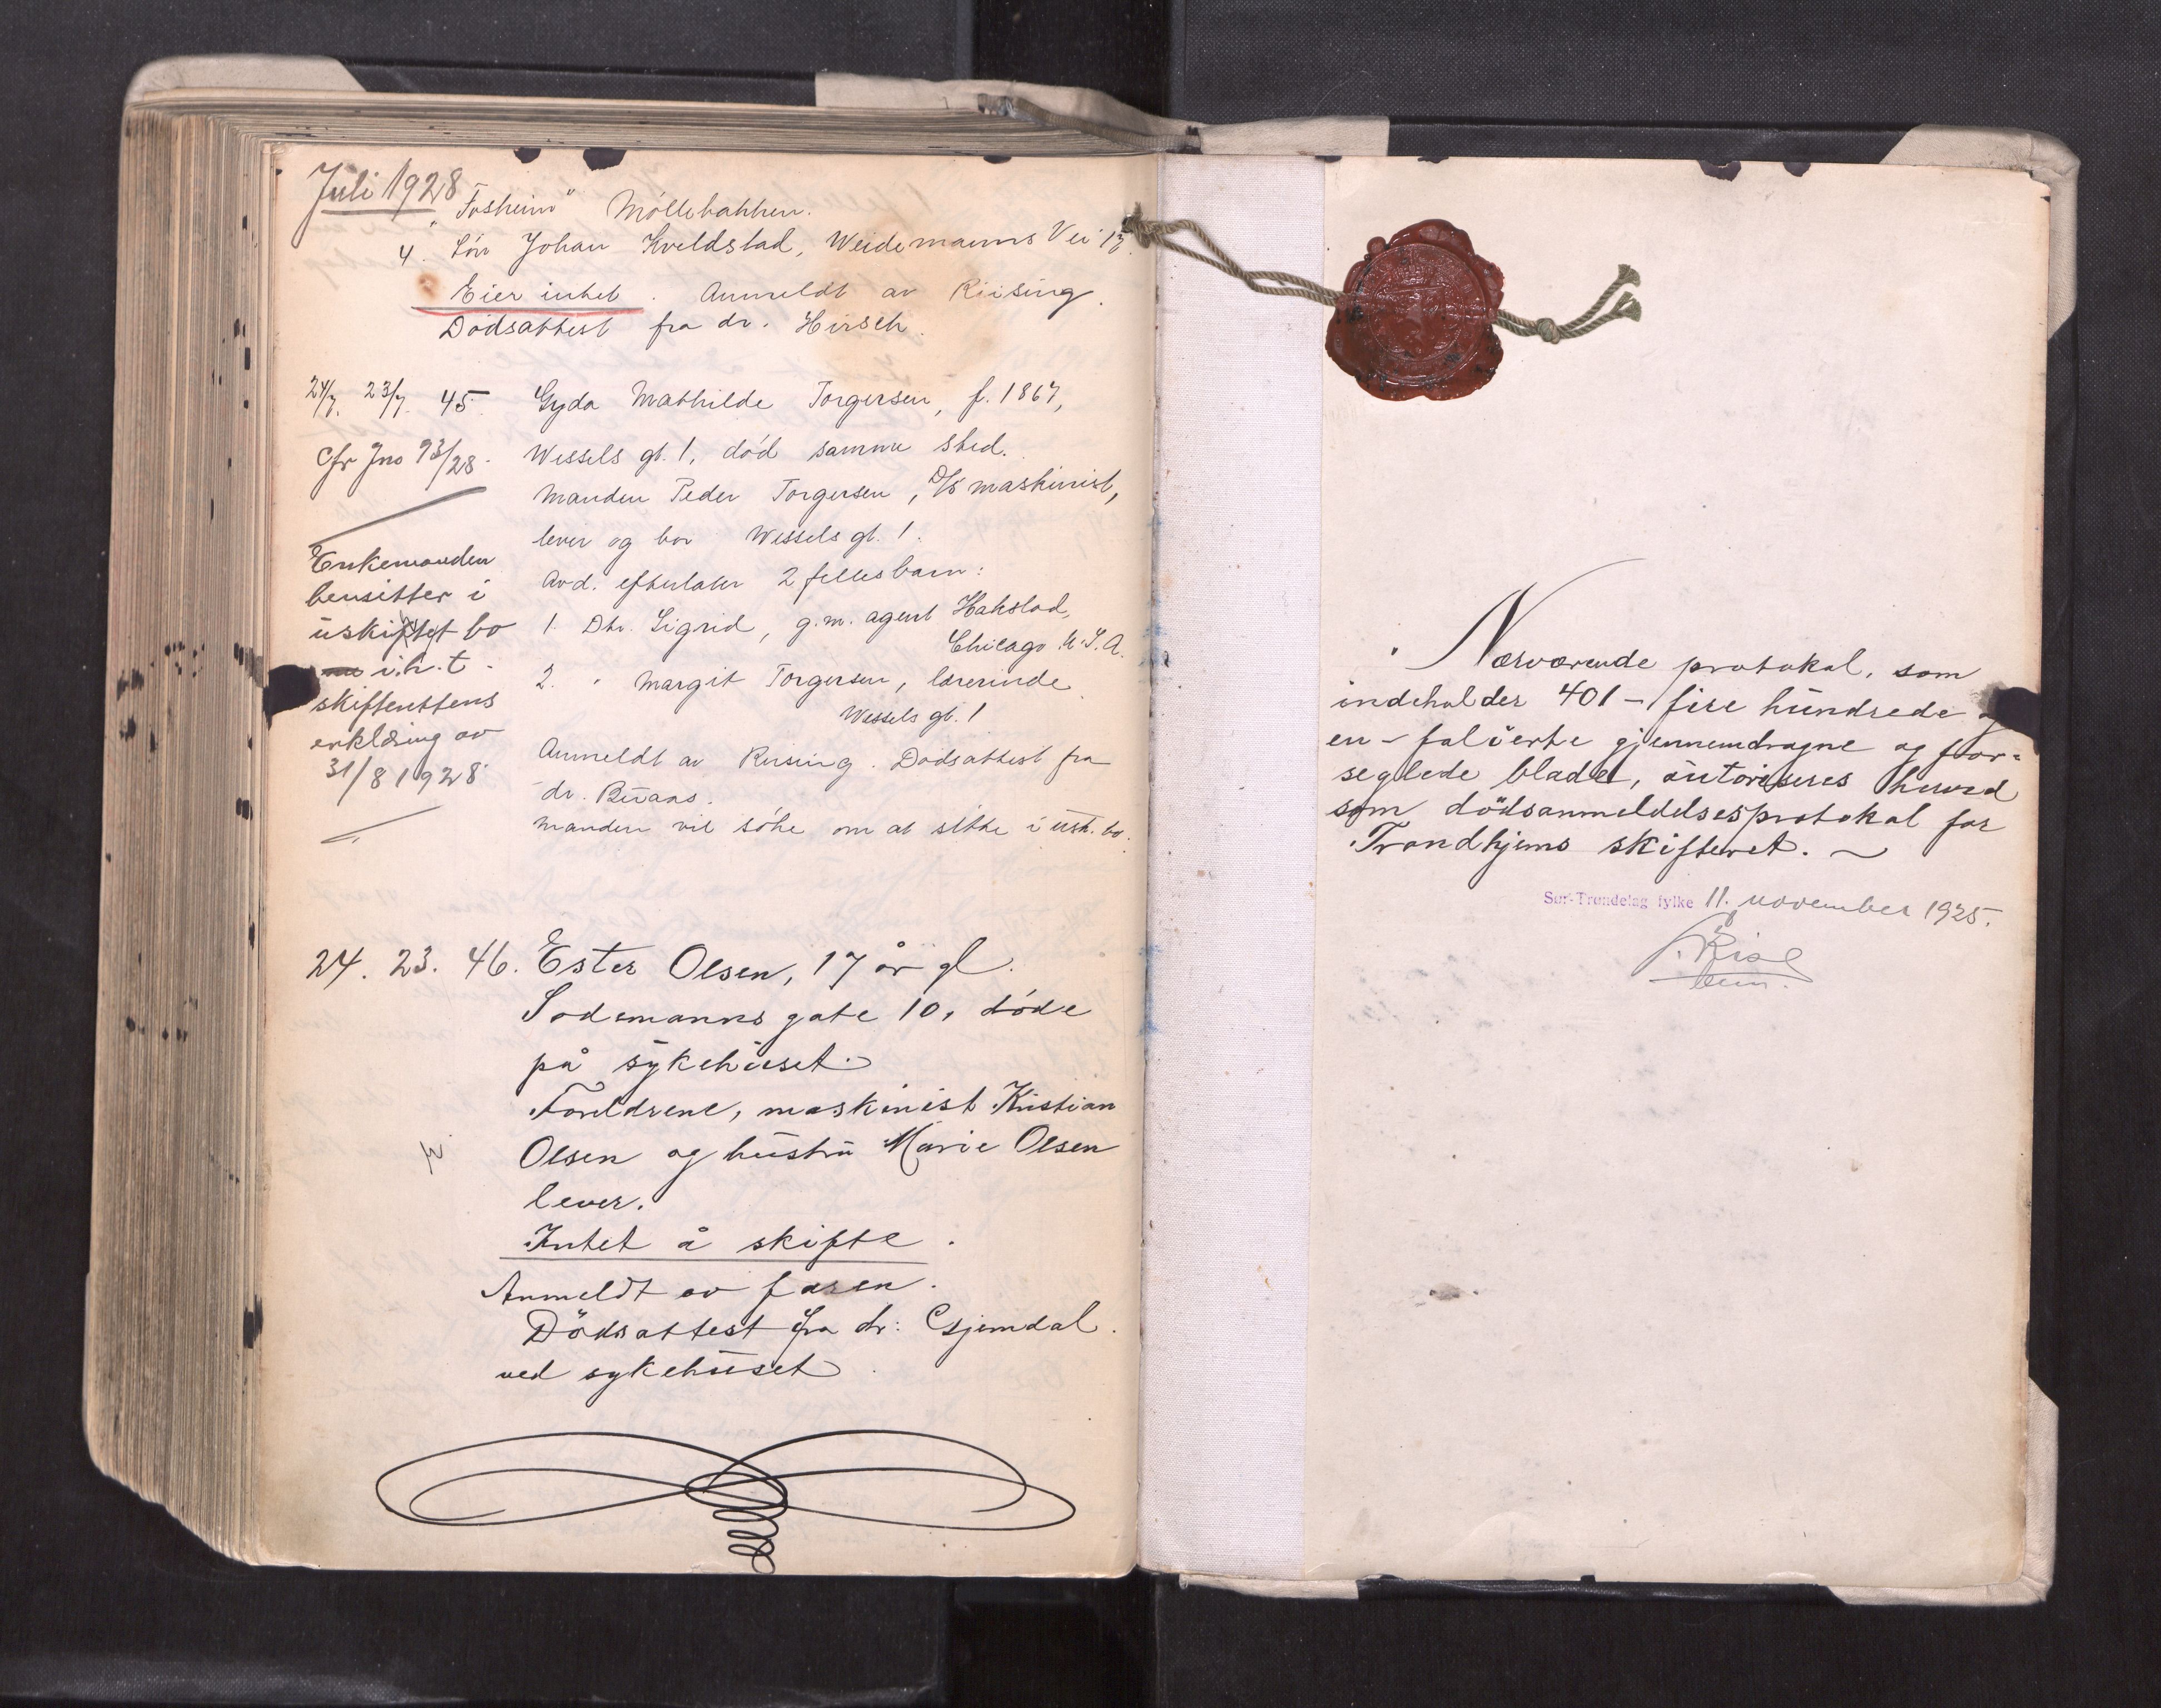 Juli 1928
"Fosheim" Möllebakken.
4. Sön Johan Kveldstad, Weidemanns Vei 13.
Eier intet. Anmeldt av Riising.
Dödsattest fra dr. Hirsch.
24/7. 23/7. 45. Gyda Mathilde Torgersen, f. 1867,
Cfr Jno 93/28.
Wessels gt. 1, död samme sted.
Manden Peder Torgersen, D/S maskinist,
lever og bor Wessels gt. 1.
Avd. efterlater 2 fellesbarn:
1. Dtr. Sigrid, g.m. agent Hakstad,
Chicago U.S.A.
2. " Margit Torgersen, lærerinde
Wessels gt. 1
Anmeldt av Riising. Dödsattest fra
dr. Buaas.
Manden vil söke om at sitte i usk. bo.
Enkemanden
hensitter i
uskiftet bo
i.h.t.
skifterettens
erklæring av
31/8 1928
24. 23. 46. Ester Olsen, 17 år gl.
Sodemanns gate 10, döde
på sykehuset.
Foreldrene, maskinist Kristian
Olsen og hustru Marie Olsen
lever.
Intet å skifte.
Anmeldt av faren.
Dödsattest fra dr: Gjemdal
ved sykehuset
Nærværende protokol, som
indeholder 401 - fire hundrede og
en - folierte gjennemdragne og for-
seglede blade, autoriseres herved
som dödsanmeldelsesprotokol for
Trondhjems skifteret.
Sør-Trøndelag fylke 11. november 1925.